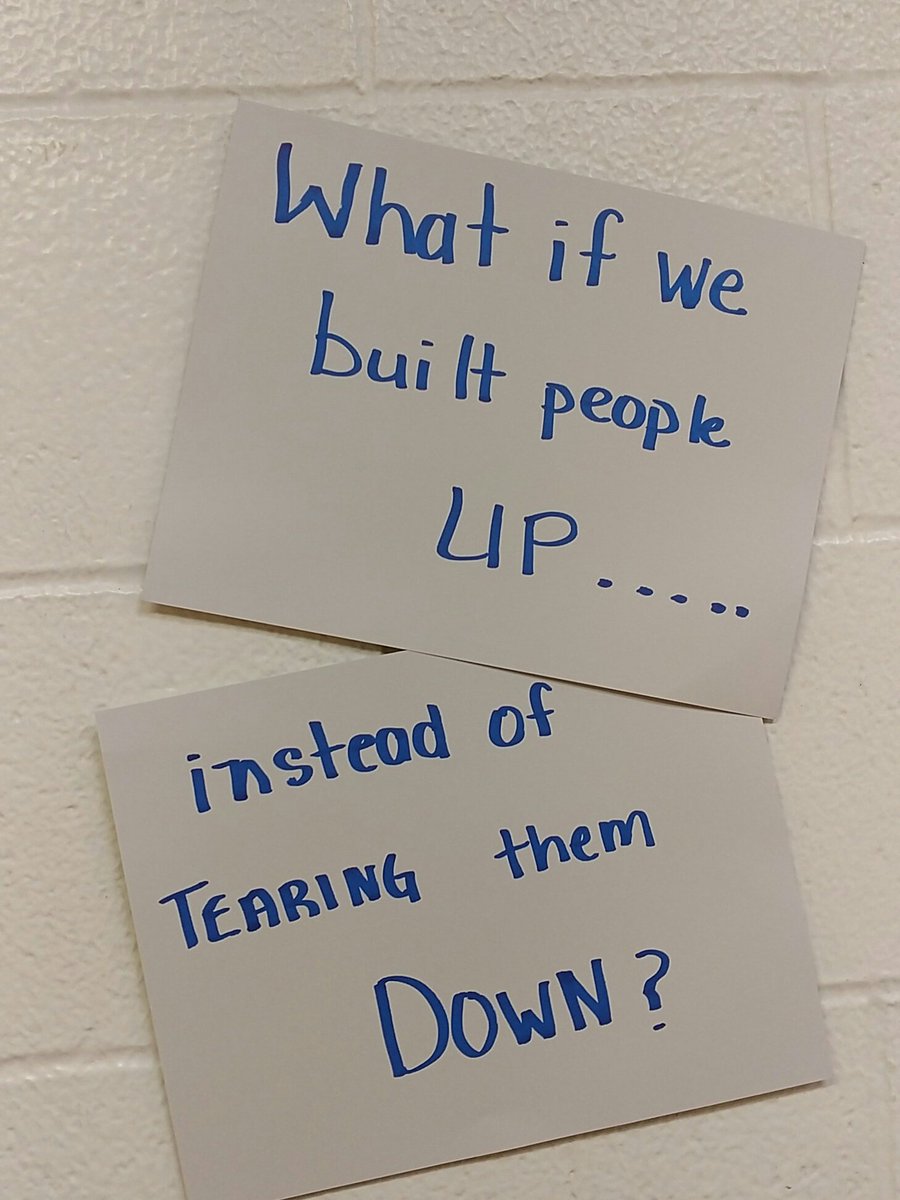 What if we
built people
UP.....
instead of
TEARING them
DOWN?